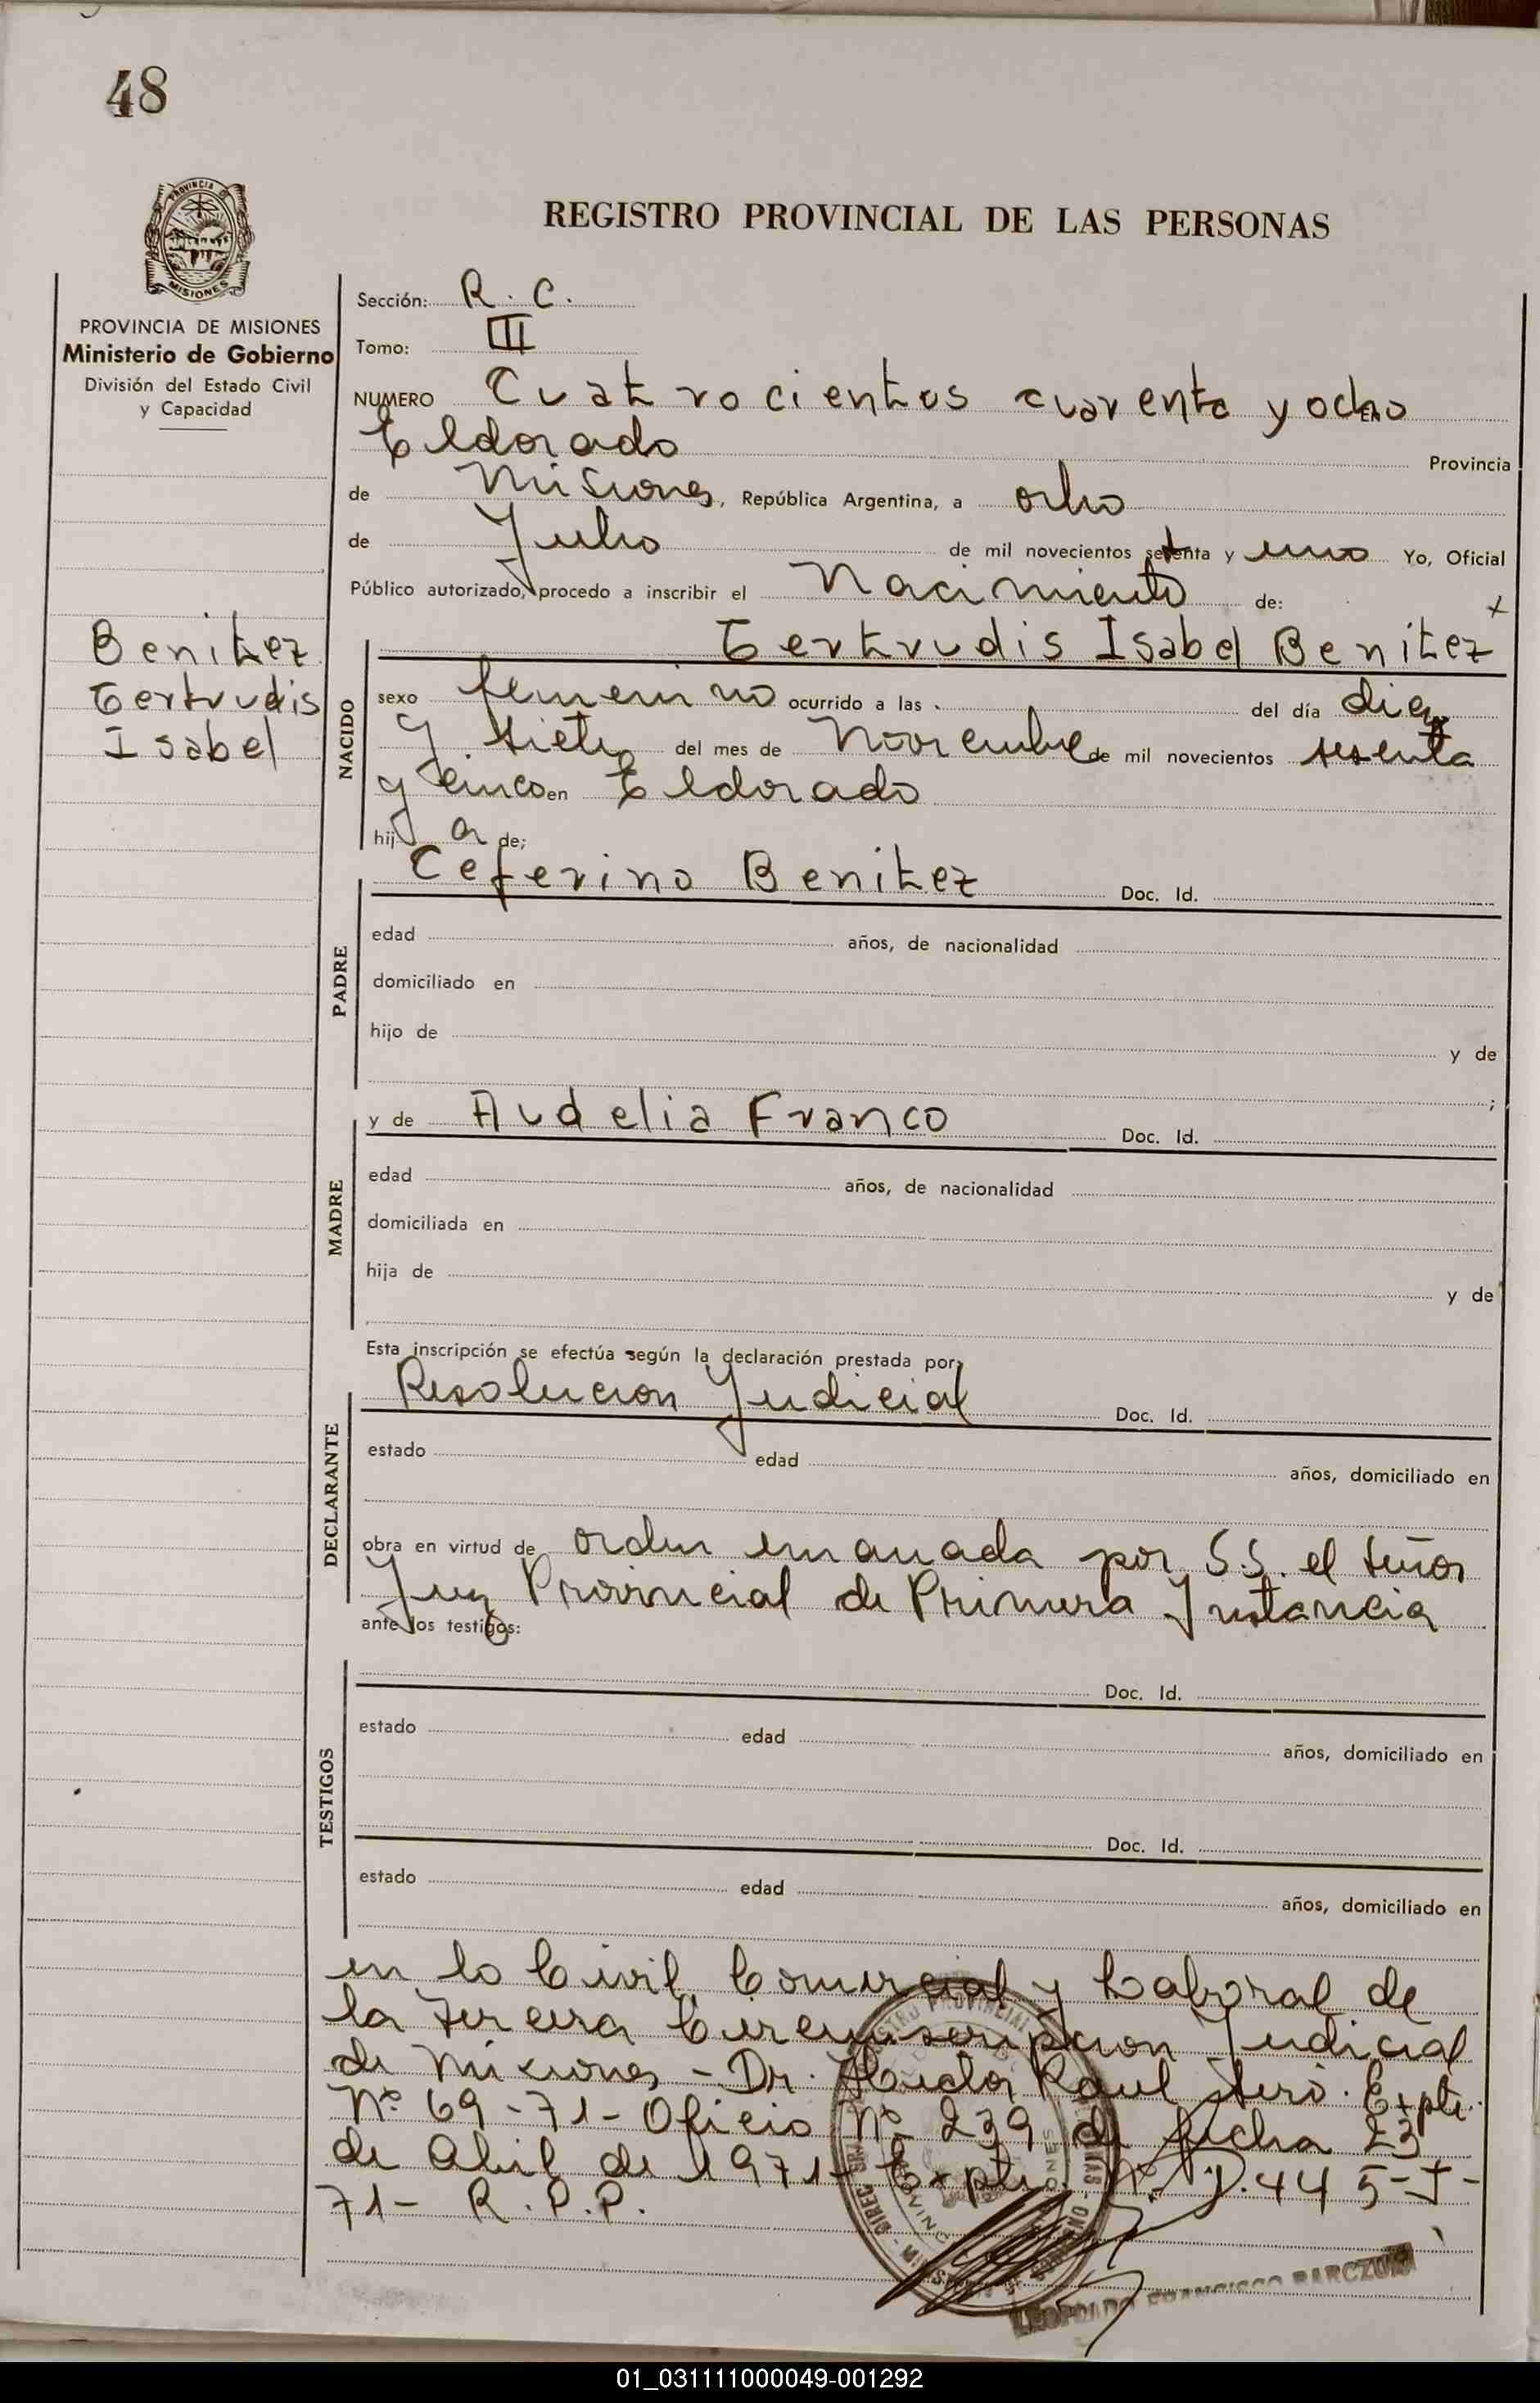 48
PROVINCIA DE MISIONES
MISIONES
PROVINCIA DE MISIONES
Ministerio de Gobierno
División del Estado Civil
y Capacidad
Benitez
Gertrudis
Isabel
REGISTRO PROVINCIAL DE LAS PERSONAS
Sección: R. C.
Tomo: III
NUMERO Cuatrocientos cuarenta y ocho EN
Eldorado Provincia
de Misiones, República Argentina, a ocho
de Julio de mil novecientos setenta y uno Yo, Oficial
Público autorizado, procedo a inscribir el Nacimiento de:
Gertrudis Isabel Benitez
NACIDO
sexo femenino ocurrido a las del día diez
y siete del mes de Noviembre de mil novecientos sesenta
y cinco en Eldorado
hij a de;
PADRE
Ceferino Benitez Doc. Id.
edad años, de nacionalidad
domiciliado en
hijo de y de
;
MADRE
y de Audelia Franco Doc. Id.
edad años, de nacionalidad
domiciliada en
hija de y de
Esta inscripción se efectúa según la declaración prestada por;
DECLARANTE
Resolucion Judicial Doc. Id.
estado edad años, domiciliado en
obra en virtud de orden emanada por S.S. el señor
Juez Provincial de Primera Instancia
ante los testigos:
TESTIGOS
Doc. Id.
estado edad años, domiciliado en
Doc. Id.
estado edad años, domiciliado en
en lo Civil Comercial y Laboral de
la Tercera Circunscripcion Judicial
de Misiones - Dr. Raul Expte.
Nº 69-71- Oficio Nº 239 de fecha 23
de Abril de 1971- Expte. Nº D.445-J-
71- R.P.P.
LEOPOLDO FRANCISCO BARCZUK
01_031111000049-001292